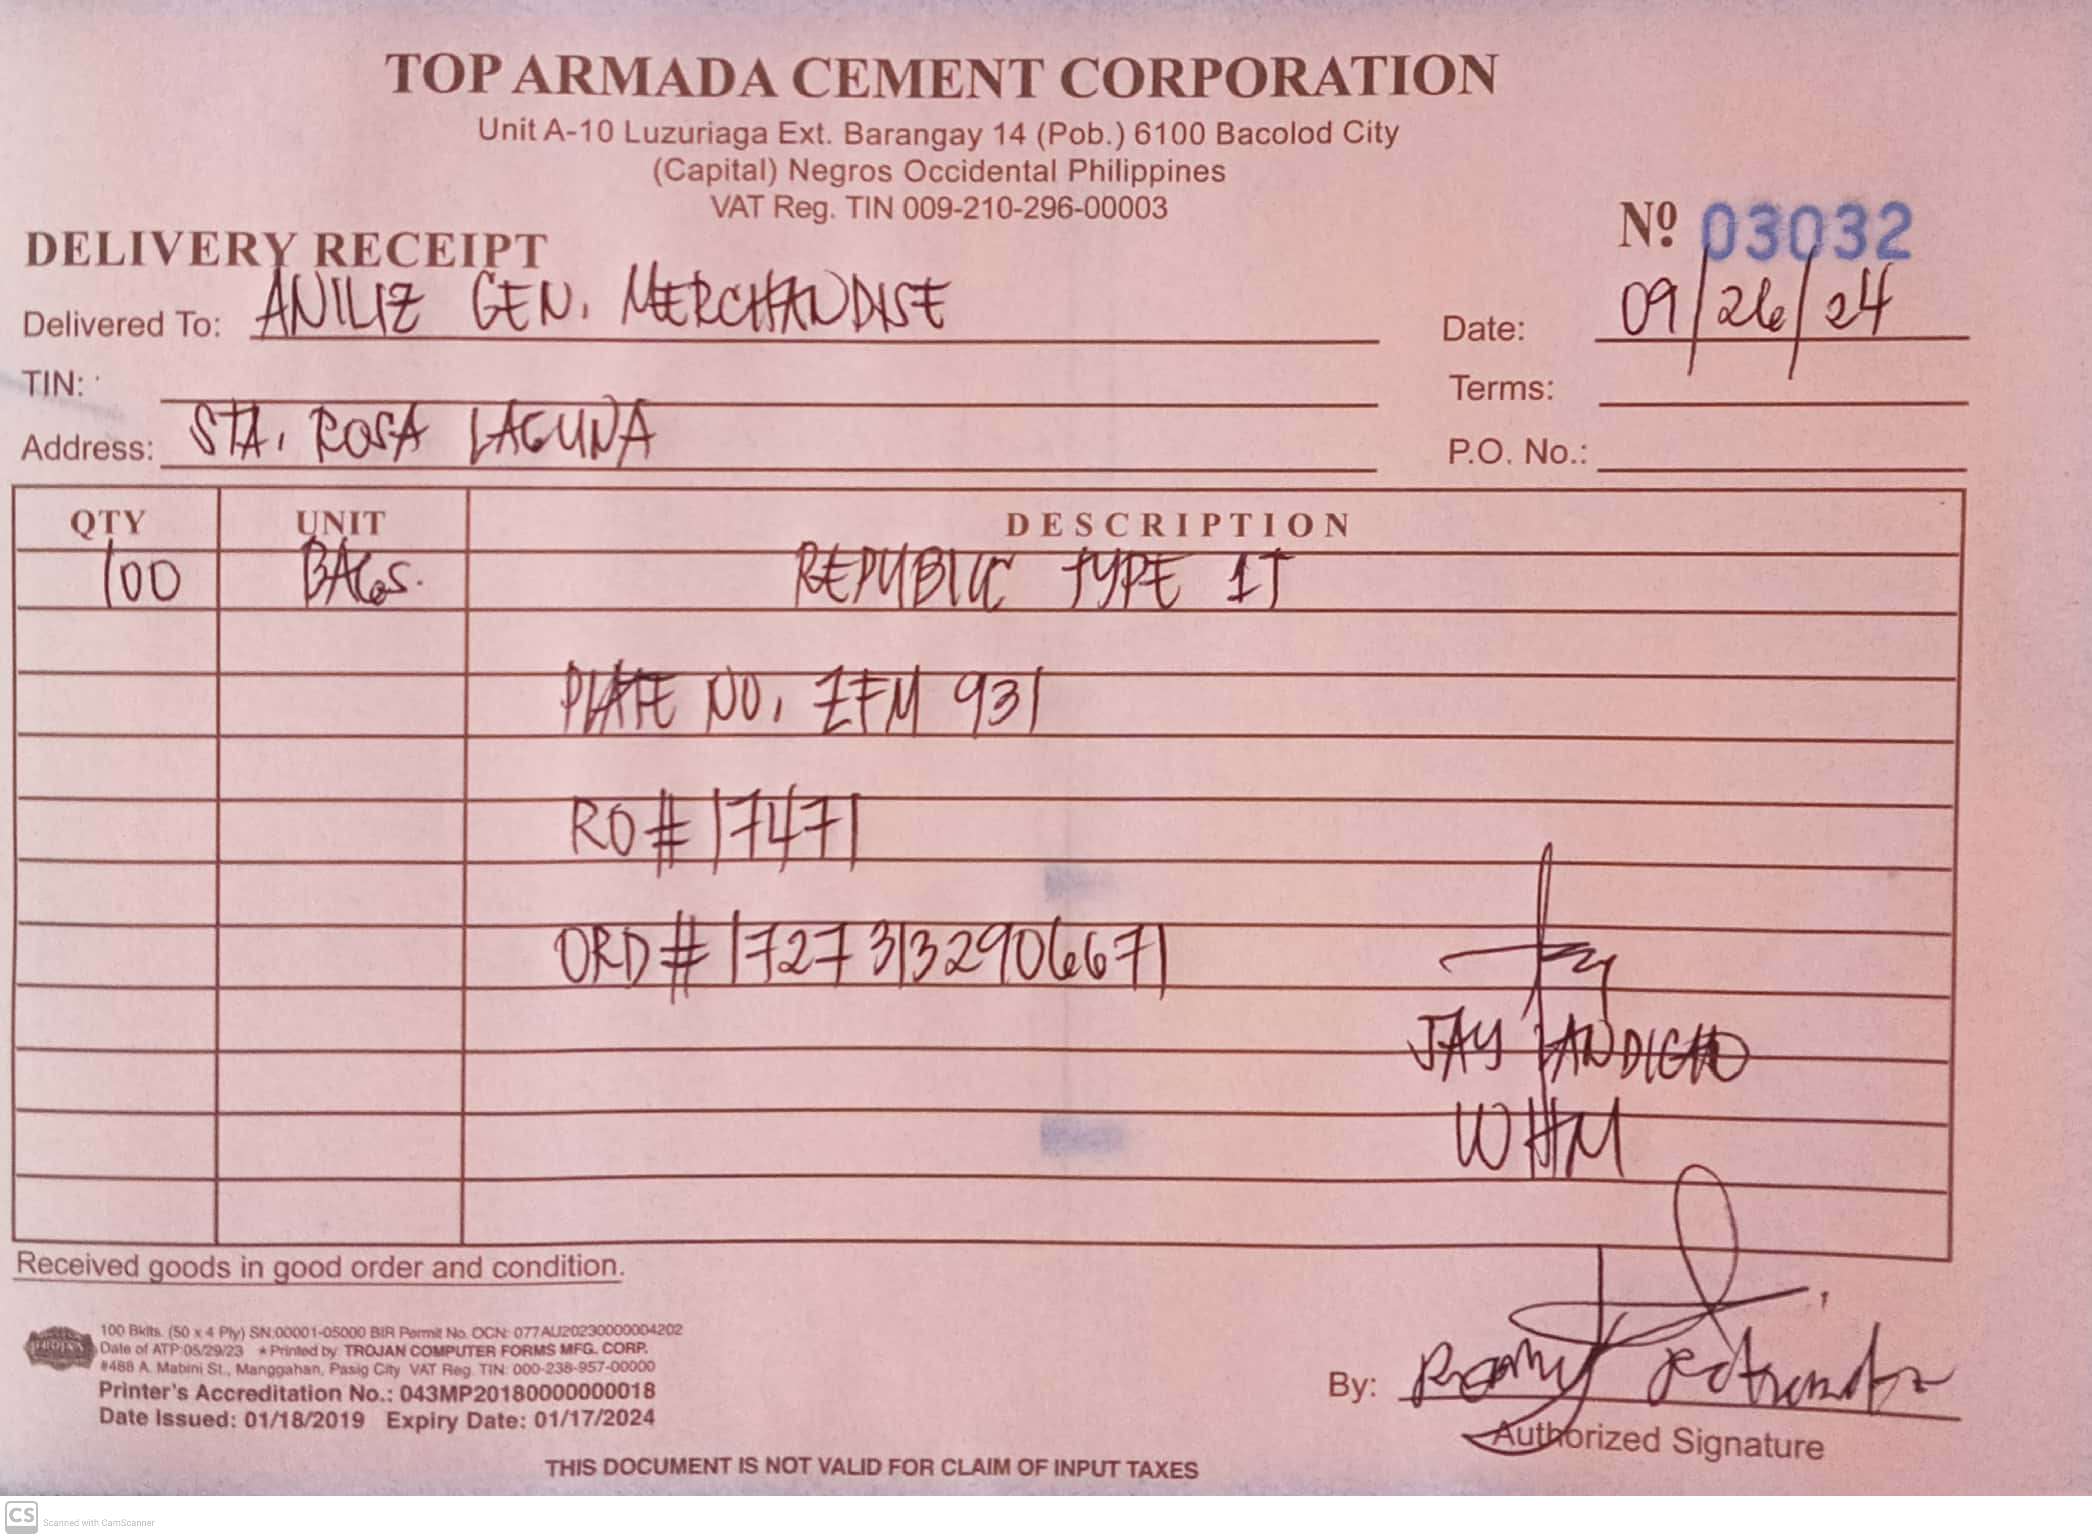 TOP ARMADA CEMENT CORPORATION
Unit A-10 Luzuriaga Ext. Barangay 14 (Pob.) 6100 Bacolod City
(Capital) Negros Occidental Philippines
VAT Reg. TIN 009-210-296-00003
Nº 03032
DELIVERY RECEIPT
Delivered To: ANILIZ GEN. MERCHANDISE
Date: 09/26/24
TIN:
Terms:
Address: STA. ROSA LAGUNA
P.O. No.:
QTY UNIT DESCRIPTION
100 BAGS. REPUBLIC TYPE 1T
PLATE NO. ZFM 931
RO# 17471
ORD# 17273132906671
JAY LANDICHO
WHM
Received goods in good order and condition.
100 Bklts. (50 x 4 Ply) SN:00001-05000 BIR Permit No. OCN: 077AU20230000004202
Date of ATP:05/29/23 * Printed by: TROJAN COMPUTER FORMS MFG. CORP.
#488 A. Mabini St., Manggahan, Pasig City VAT Reg. TIN: 000-238-957-00000
Printer's Accreditation No.: 043MP20180000000018
Date Issued: 01/18/2019 Expiry Date: 01/17/2024
By:
Authorized Signature
THIS DOCUMENT IS NOT VALID FOR CLAIM OF INPUT TAXES
CS Scanned with CamScanner